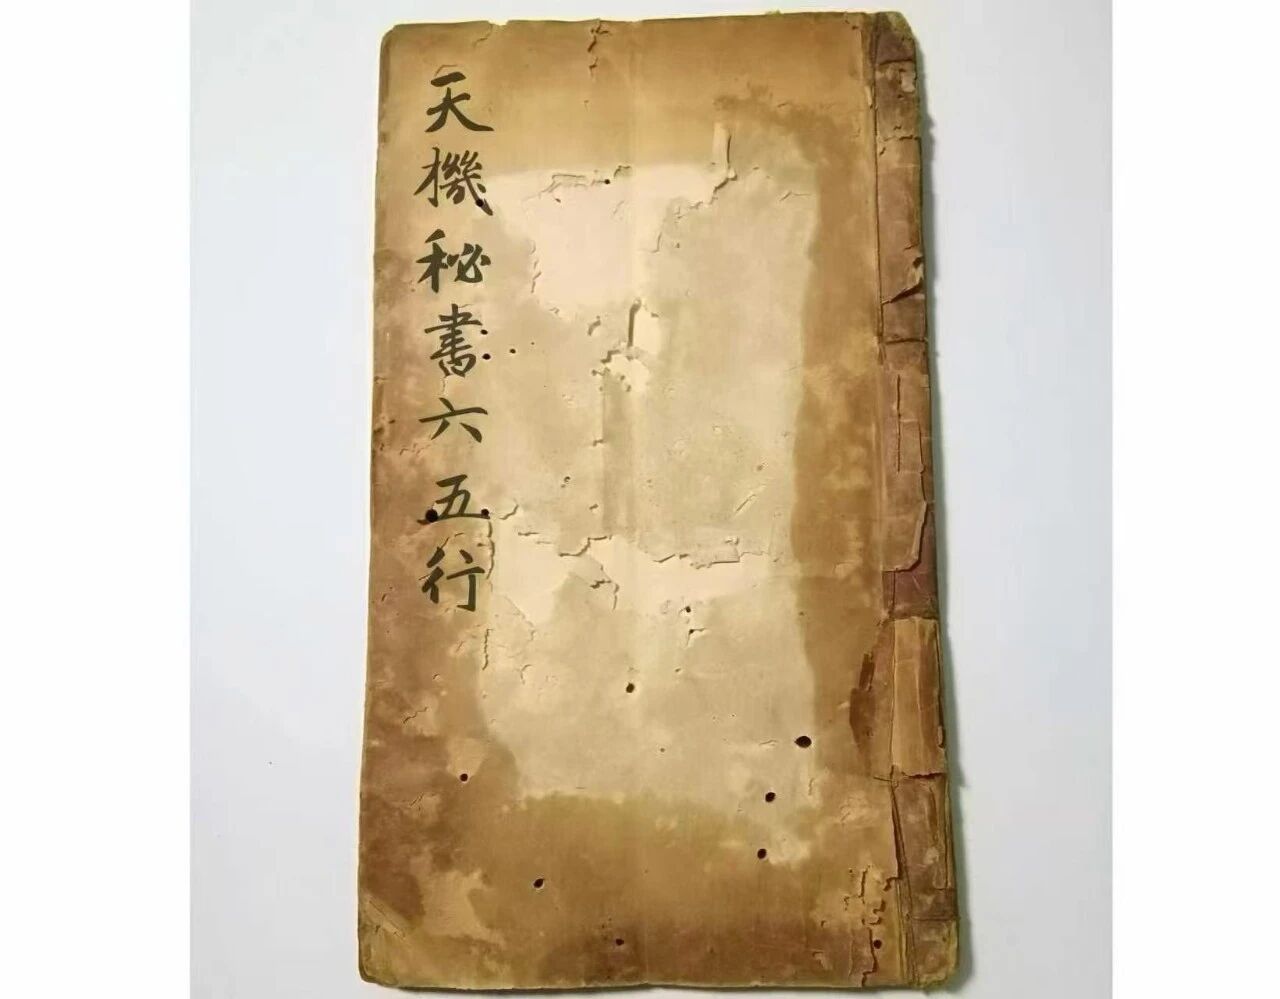 天機秘書六 五行